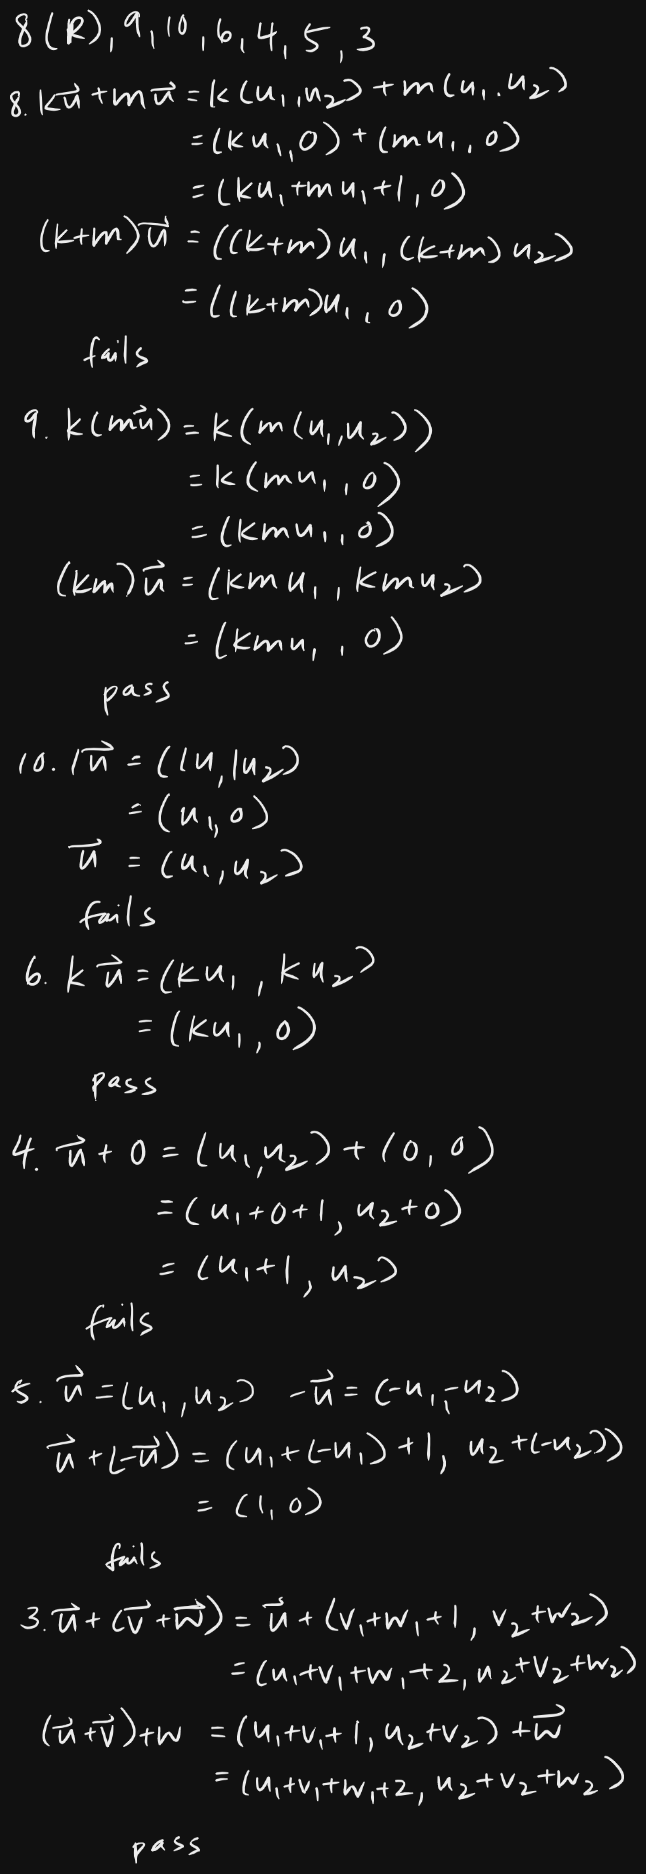 8(R), 9, 10, 6, 4, 5, 3
8. ku⃗ + mu⃗ = k(u₁, u₂) + m(u₁. u₂)
= (ku₁, 0) + (mu₁, 0)
= (ku₁ + mu₁ + 1, 0)
(k+m)u⃗ = ((k+m)u₁, (k+m)u₂)
= ((k+m)u₁, 0)
fails
9. k(mu⃗) = k(m(u₁, u₂))
= k(mu₁, 0)
= (kmu₁, 0)
(km)u⃗ = (kmu₁, kmu₂)
= (kmu₁, 0)
pass
10. 1u⃗ = (1u, 1u₂)
= (u₁, 0)
u⃗ = (u₁, u₂)
fails
6. ku⃗ = (ku₁, ku₂)
= (ku₁, 0)
pass
4. u⃗ + 0 = (u₁, u₂) + (0, 0)
= (u₁ + 0 + 1, u₂ + 0)
= (u₁ + 1, u₂)
fails
5. u⃗ = (u₁, u₂) -u⃗ = (-u₁, -u₂)
u⃗ + (-u⃗) = (u₁ + (-u₁) + 1, u₂ + (-u₂))
= (1, 0)
fails
3. u⃗ + (v⃗ + w⃗) = u⃗ + (v₁ + w₁ + 1, v₂ + w₂)
= (u₁ + v₁ + w₁ + 2, u₂ + v₂ + w₂)
(u⃗ + v⃗) + w = (u₁ + v₁ + 1, u₂ + v₂) + w⃗
= (u₁ + v₁ + w₁ + 2, u₂ + v₂ + w₂)
pass